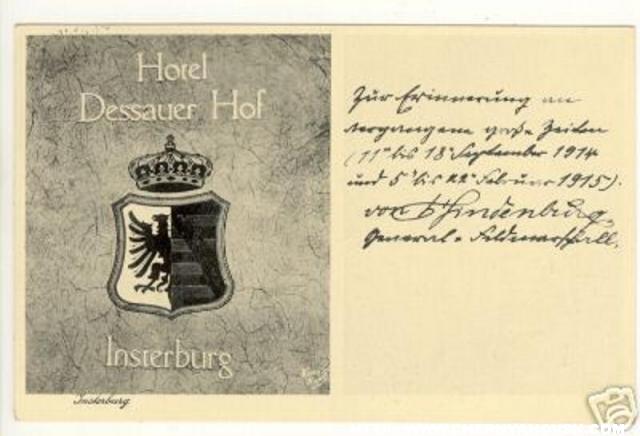 Hotel
Dessauer Hof
Insterburg
Insterburg
Zur Erinnerung an
vergangene große Zeiten
(11ten bis 18 September 1914
und 5ten bis 22 Februar 1915).
von Hindenburg,
General-Feldmarschall.